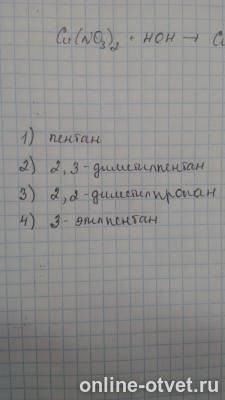 Cu(NO₃)₂ + HOH → C
1) пентан
2) 2,3-диметилпентан
3) 2,2-диметилпропан
4) 3-этилпентан
online-otvet.ru